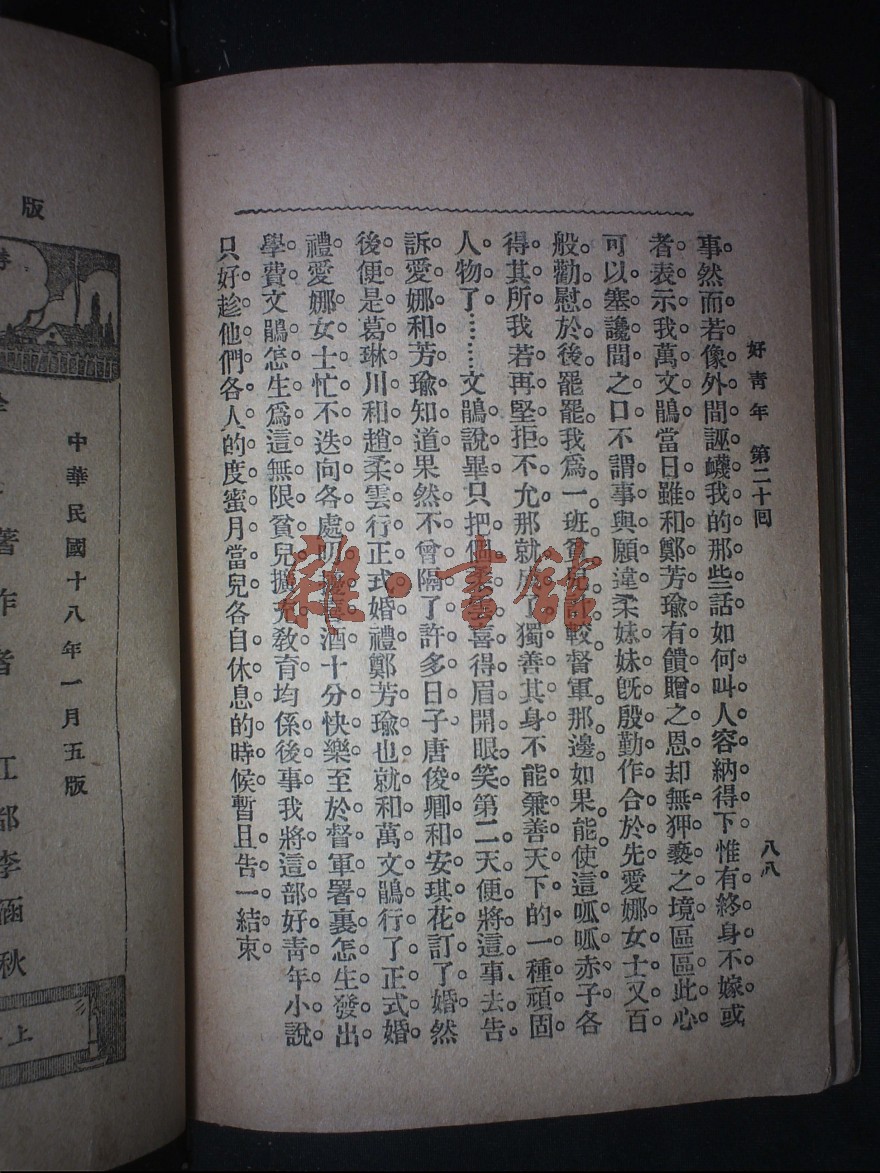 好靑年 第二十回
八八
事。然而若像外間誣衊我的那些話。如何叫人容納得下。惟有終身不嫁。或
者表示我萬文鵑當日雖和鄭芳瑜有饋贈之恩。却無狎褻之境。區區此心。
可以塞讒間之口。不謂事與願違。柔妹妹旣殷勤作合於先。愛娜女士又百
般勸慰於後。罷罷。我爲一班貧兒計較。督軍那邊如果能使這呱呱赤子各
得其所。我若再堅拒不允。那就成了獨善其身不能兼善天下的一種頑固
人物了……文鵑說畢。只把個柔雲喜得眉開眼笑。第二天便將這事去告
訴愛娜和芳瑜知道。果然不曾隔了許多日子。唐俊卿和安琪花訂了婚。然
後便是葛琳川和趙柔雲行正式婚禮。鄭芳瑜也就和萬文鵑行了正式婚
禮。愛娜女士忙不迭向各處叨擾喜酒。十分快樂。至於督軍署裏怎生發出
學費。文鵑怎生爲這無限貧兒擴充敎育。均係後事。我將這部好靑年小說。
只好趁他們各人的度蜜月當兒各自休息的時候。暫且告一結束。
雜·書館
版
中華民國十八年一月五版
著作者 江都李涵秋
上